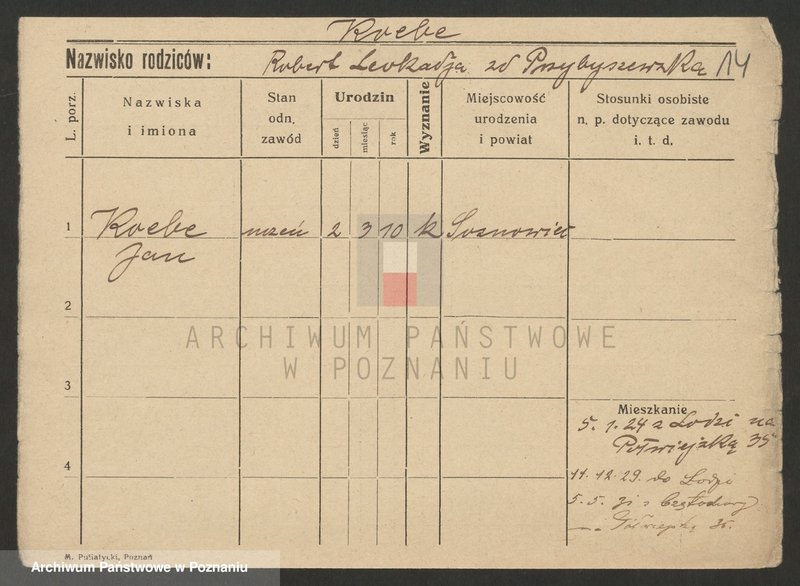 Koebe
Nazwisko rodziców: Robert Leokadja zd Przybyszewską 14
L. porz.
Nazwiska
i imiona
Stan
odn.
zawód
Urodzin
dzień
miesiąc
rok
Wyznanie
Miejscowość
urodzenia
i powiat
Stosunki osobiste
n. p. dotyczące zawodu
i. t. d.
1 Koebe uczeń 2 3 10 k Sosnowiec
Jan
2
3
4
ARCHIWUM PAŃSTWOWE
W POZNANIU
Mieszkanie
5. 1. 24 z Łodzi na
Półwiejską 35
11. 12. 29. do Łodzi
5. 5. 31 z
Półwiejska 35.
M. Putiatycki, Poznań
Archiwum Państwowe w Poznaniu